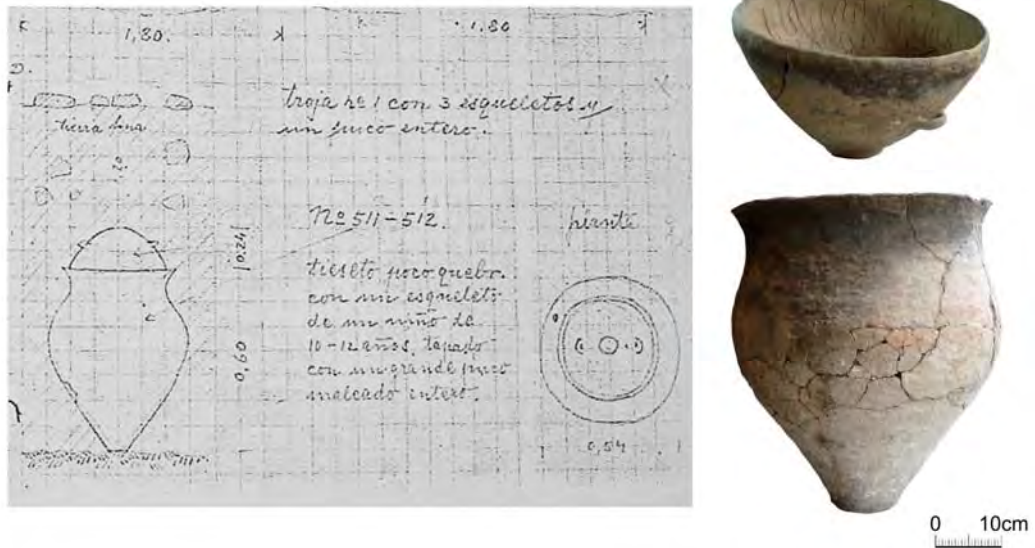 1,80.
1.80
troja nº 1 con 3 esqueletos y
un puco entero.
tierra fina
Nº 511-512.
tiesto poco quebr.
con un esqueleto
de un niño de
10-12 años, tapado
con un grande puco
maleado entero.
0,24
0,60
0,54
0 10cm